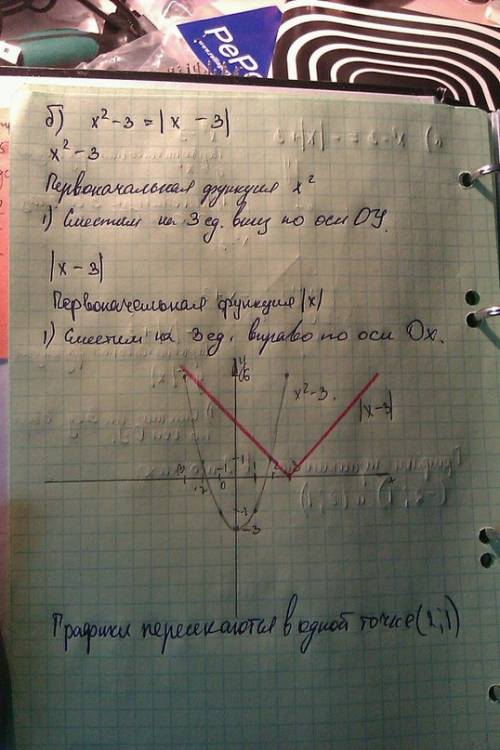 РеРо
б) x² - 3 = |x - 3|
x² - 3
Первоначальная функция x²
1) Сместим на 3 ед. вниз по оси OY.
|x - 3|
Первоначальная функция |x|
1) Сместим на 3 ед. вправо по оси Ox.
y
6
x² - 3.
|x - 3|
1
-3 -2 -1 0 1 2 3 x
-2
-3
Графики пересекаются в одной точке (2; 1)